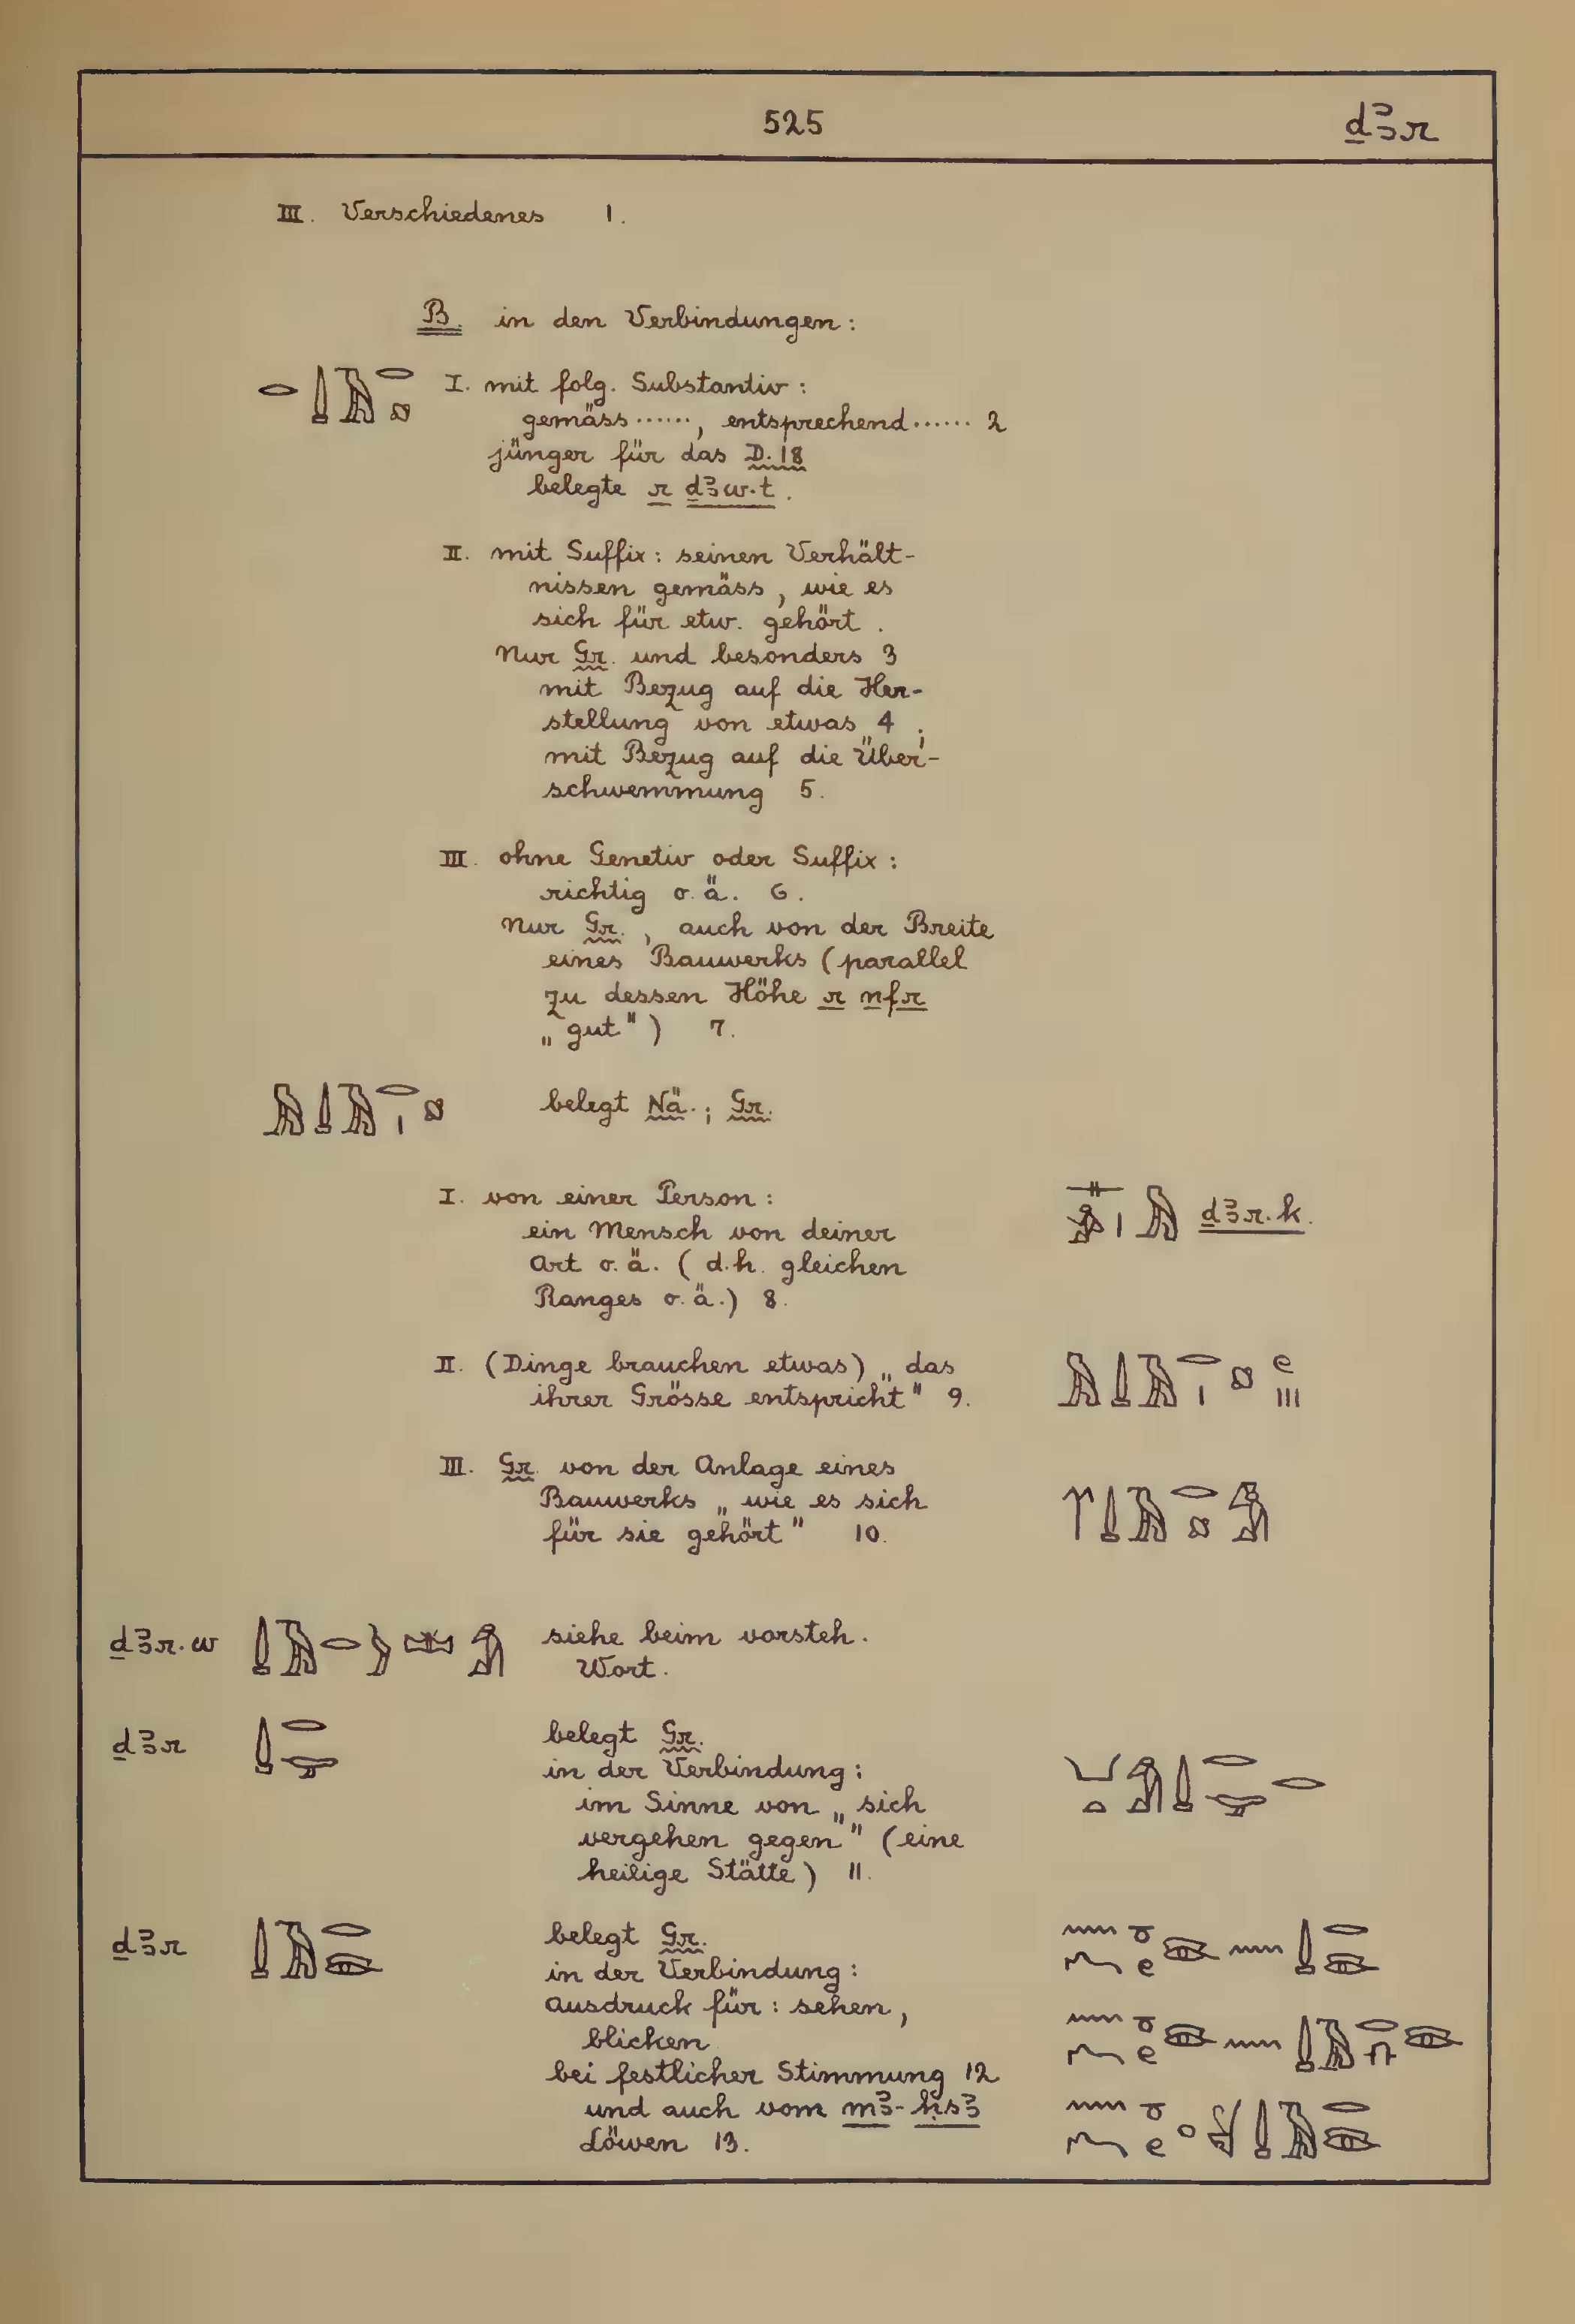 525 ḏꜣr
III. Verschiedenes 1.
B. in den Verbindungen:
I. mit folg. Substantiv:
gemäss ......, entsprechend ...... 2
jünger für das D. 18
belegte r ḏꜣw.t.
II. mit Suffix: seinen Verhält-
nissen gemäss, wie es
sich für etw. gehört.
Nur Gr. und besonders 3
mit Bezug auf die Her-
stellung von etwas 4;
mit Bezug auf die Über-
schwemmung 5.
III. ohne Genetiv oder Suffix:
richtig o.ä. 6.
Nur Gr., auch von der Breite
eines Bauwerks (parallel
zu dessen Höhe r nfr
„gut") 7.
belegt Nä.; Gr.
I. von einer Person: ḏꜣr.k.
ein Mensch von deiner
Art o.ä. (d.h. gleichen
Ranges o.ä.) 8.
II. (Dinge brauchen etwas) „das
ihrer Grösse entspricht" 9.
III. Gr. von der Anlage eines
Bauwerks „wie es sich
für sie gehört" 10.
ḏꜣr.w siehe beim vorsteh.
Wort.
ḏꜣr belegt Gr.
in der Verbindung:
im Sinne von „sich
vergehen gegen" (eine
heilige Stätte) 11.
ḏꜣr belegt Gr.
in der Verbindung:
Ausdruck für: sehen,
blicken
bei festlicher Stimmung 12
und auch vom mꜣ-ḥsꜣ
Löwen 13.